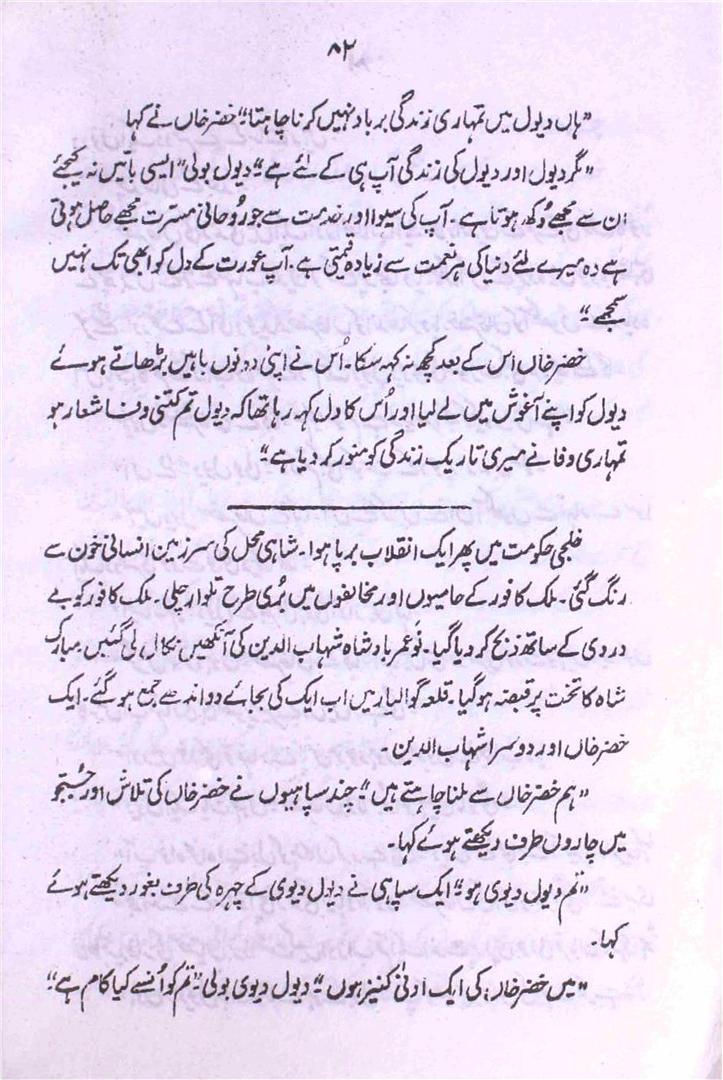 ۸۲
"ہاں دیول میں تمہاری زندگی برباد نہیں کرنا چاہتا" خضر خاں نے کہا
"مگر دیول اور دیول کی زندگی آپ ہی کے لئے ہے" دیول بولی "ایسی باتیں نہ کیجئے
اِن سے مجھے دُکھ ہوتا ہے۔ آپ کی سیوا اور خدمت سے جو رُوحانی مسّرت مجھے حاصل ہوتی
ہے وہ میرے لئے دنیا کی ہر نعمت سے زیادہ قیمتی ہے۔ آپ عورت کے دل کو ابھی تک نہیں
سمجھے"
خضر خاں اس کے بعد کچھ نہ کہہ سکا۔ اُس نے اپنی دونوں باہیں بڑھاتے ہوئے
دیول کو اپنے آغوش میں لے لیا اور اُس کا دل کہہ رہا تھا کہ دیول تم کتنی وفا شعار ہو
تمہاری وفا نے میری تاریک زندگی کو منور کر دیا ہے"
خلجی حکومت میں پھر ایک انقلاب برپا ہوا۔ شاہی محل کی سرزمین انسانی خون سے
رنگ گئی۔ ملک کافور کے حامیوں اور مخالفوں میں بُری طرح تلوار چلی۔ ملک کافور کو بے
دردی کے ساتھ ذبح کر دیا گیا۔ نو عمر بادشاہ شہاب الدین کی آنکھیں نکال لی گئیں۔ مبارک
شاہ کا تخت پر قبضہ ہوگیا۔ قلعہ گوالیار میں اب ایک کی بجائے دو اندھے جمع ہو گئے۔ ایک
خضر خاں اور دوسرا شہاب الدین۔
"ہم خضر خاں سے ملنا چاہتے ہیں" چند سپاہیوں نے خضر خاں کی تلاش اور جستجو
میں چاروں طرف دیکھتے ہوئے کہا۔
"تم دیول دیوی ہو" ایک سپاہی نے دیول دیوی کے چہرہ کی طرف بغور دیکھتے ہوئے
کہا۔
"میں خضر خاں کی ایک ادنیٰ کنیز ہوں" دیول دیوی بولی "تم کو اُنسے کیا کام ہے"